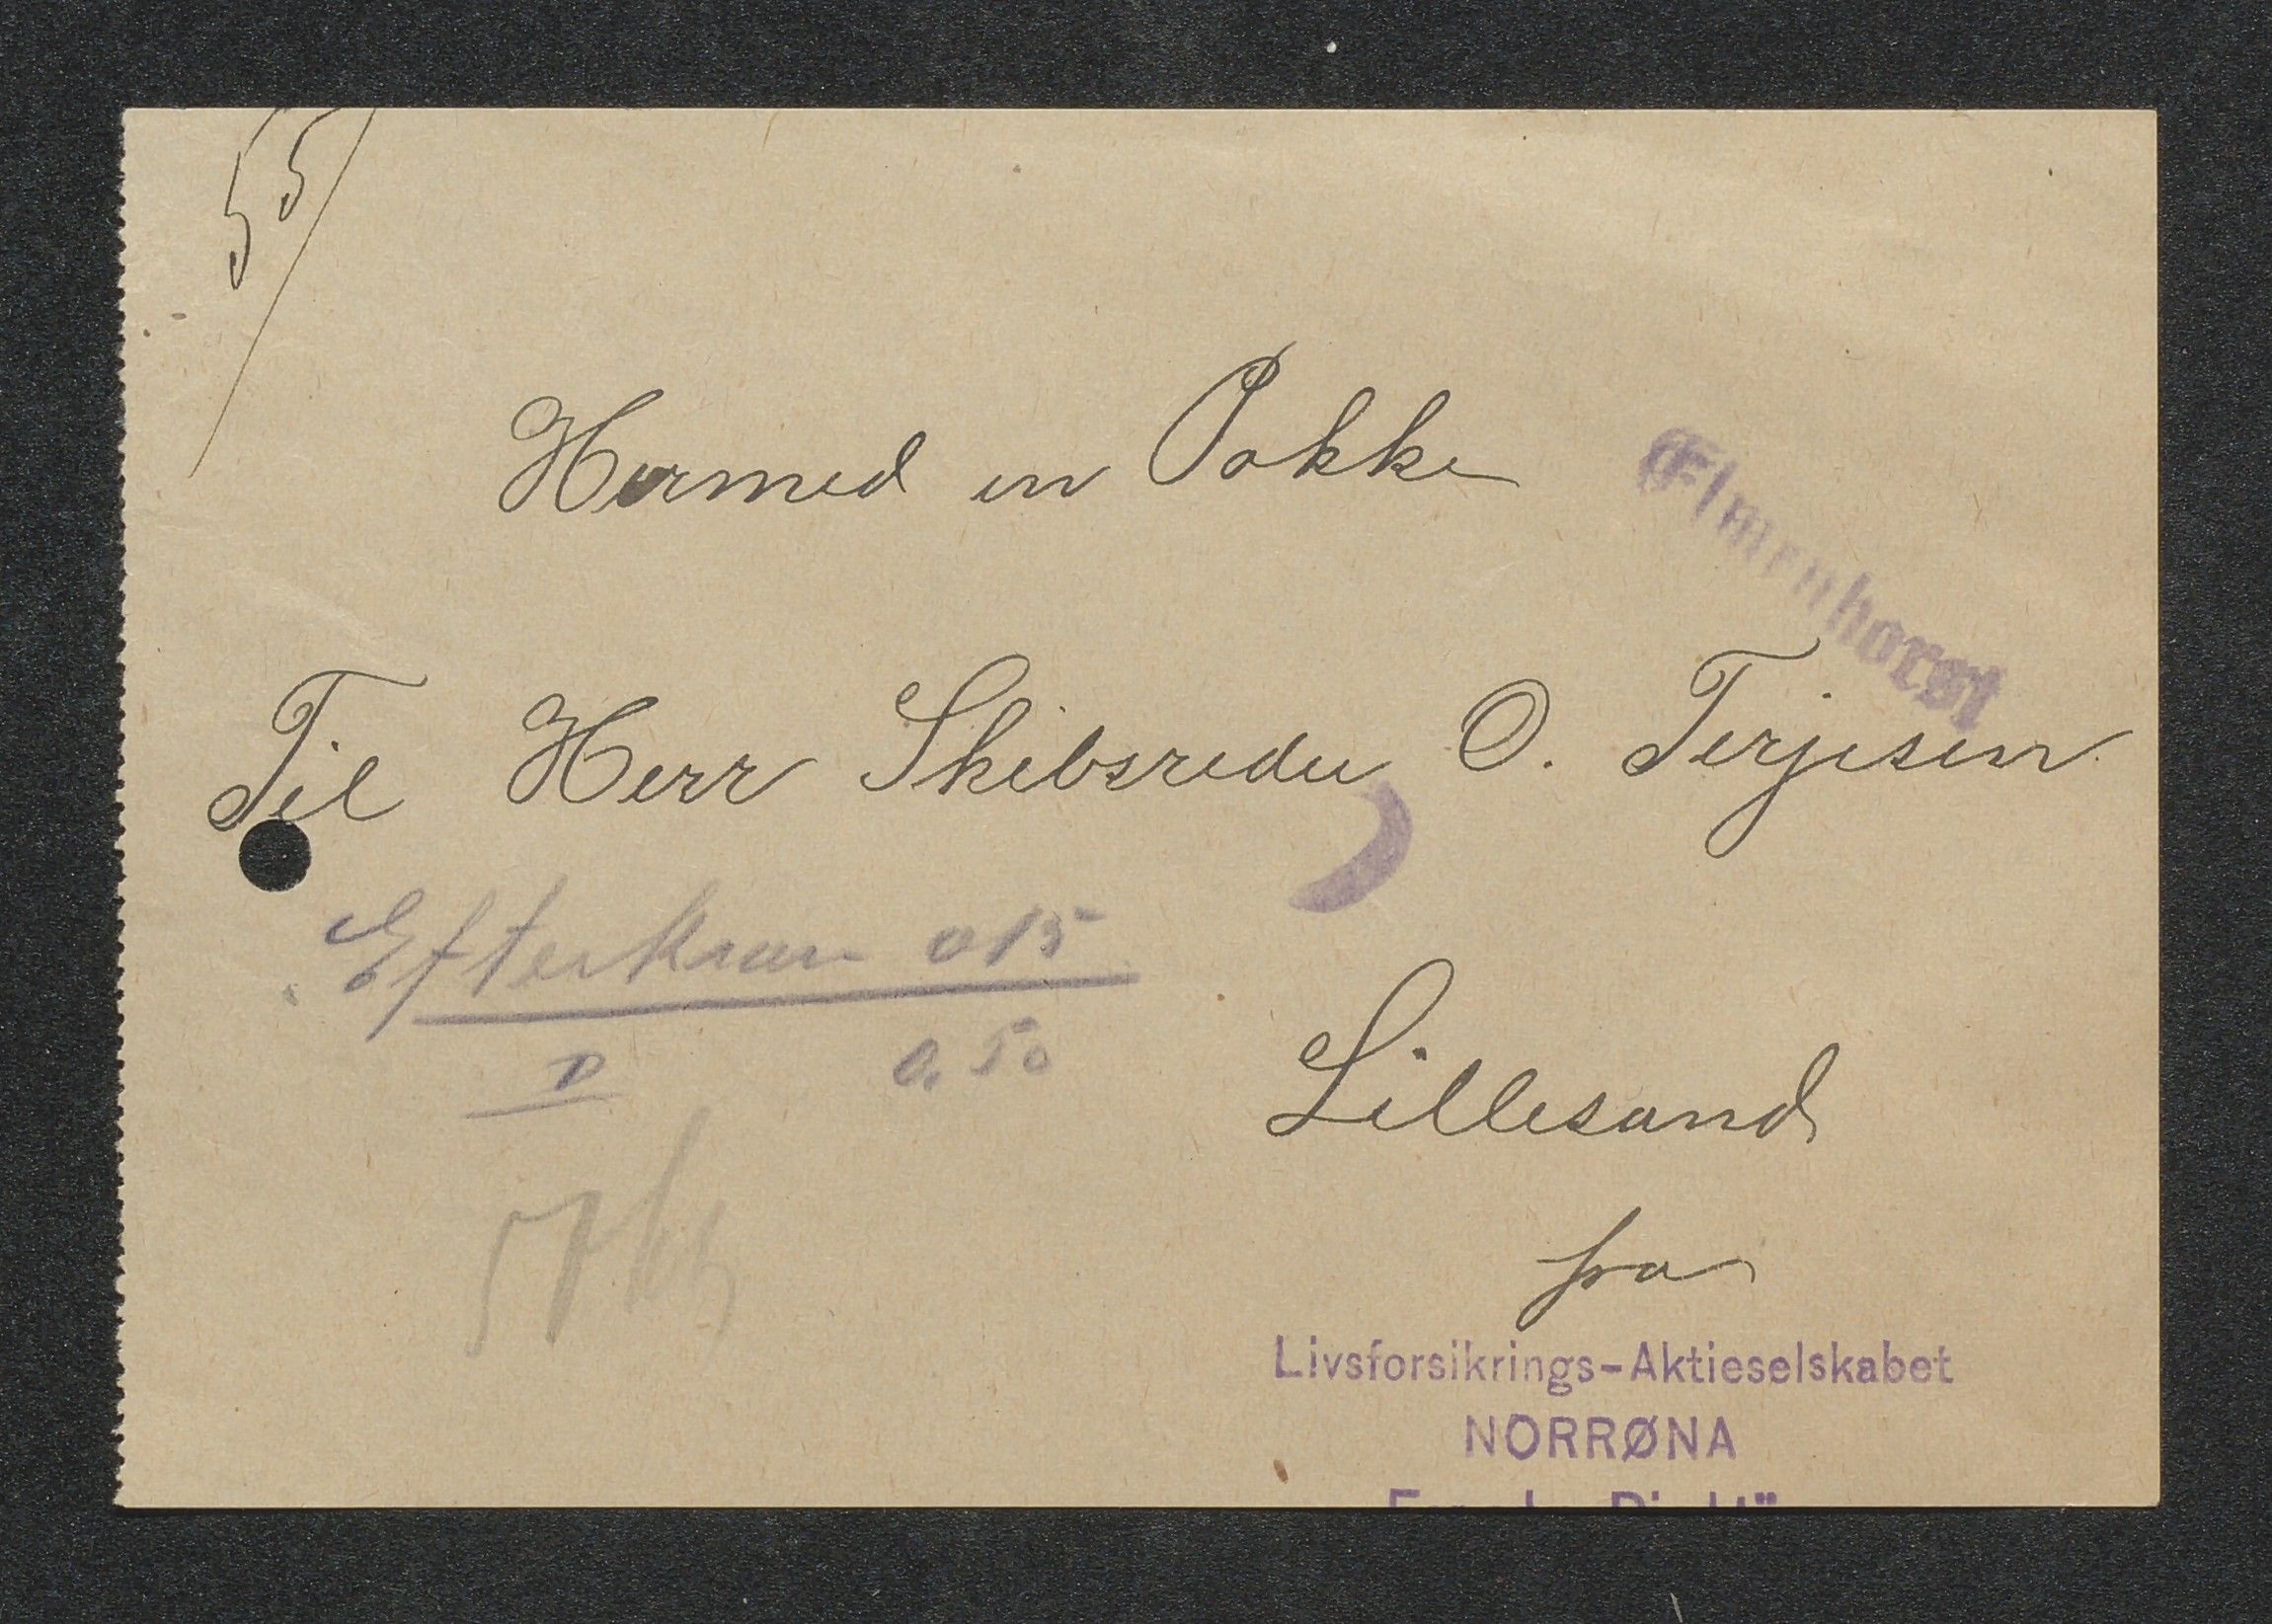 55/
Hermed en Pakke
Elmenhorst
Til Herr Skibsreder O. Terjesen
Efterkrav 015
0.50
Lillesand
fra
Livsforsikrings-Aktieselskabet
NORRØNA